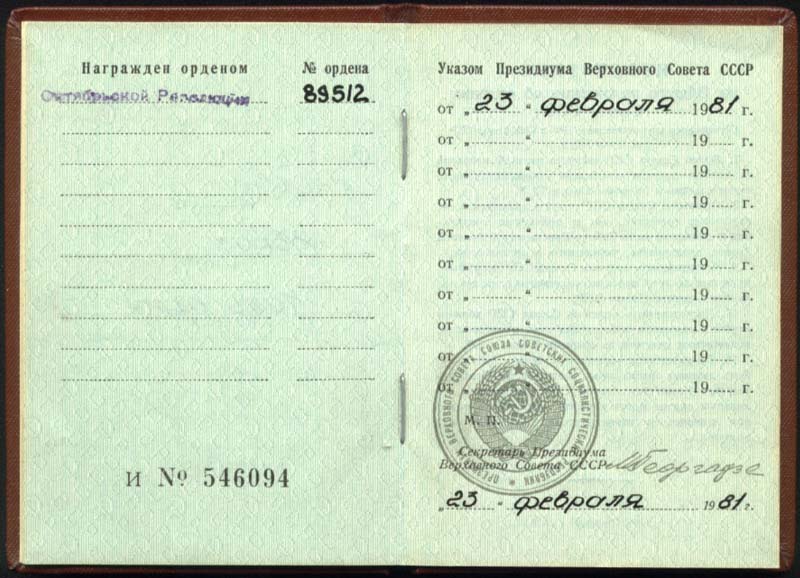 Награжден орденом
№ ордена
Октябрьской Революции
89512
И № 546094
Указом Президиума Верховного Совета СССР
от „23“ февраля 1981 г.
от „ “ 19 г.
от „ “ 19 г.
от „ “ 19 г.
от „ “ 19 г.
от „ “ 19 г.
от „ “ 19 г.
от „ “ 19 г.
от „ “ 19 г.
от „ “ 19 г.
М. П.
Секретарь Президиума
Верховного Совета СССР МГеоргадзе
„23“ февраля 1981 г.
ПРЕЗИДИУМ ВЕРХОВНОГО СОВЕТА СОЮЗА СОВЕТСКИХ СОЦИАЛИСТИЧЕСКИХ РЕСПУБЛИК